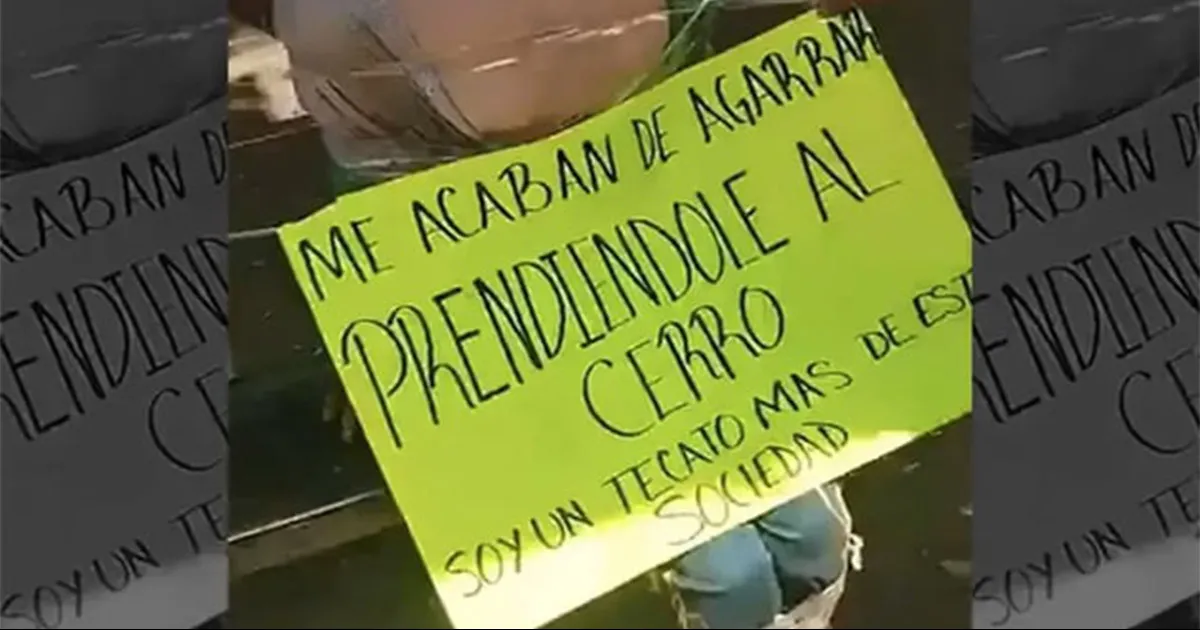 ME ACABAN DE AGARRAR
PRENDIENDOLE AL
CERRO
SOY UN TECATO MAS DE EST
SOCIEDAD